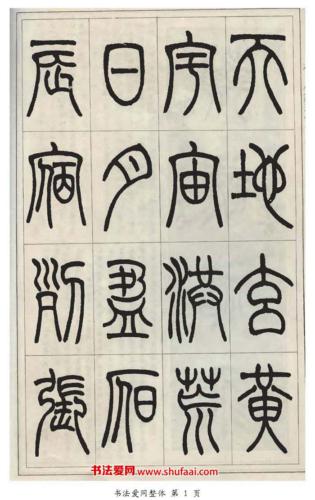 天地玄黄
宇宙洪荒
日月盈昃
辰宿列張
书法爱网 www.shufaai.com
书法爱网整体 第 1 页